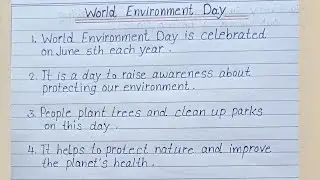 World Environment Day
1. World Environment Day is celebrated
on June 5th each year.
2. It is a day to raise awareness about
protecting our environment.
3. People plant trees and clean up parks
on this day.
4. It helps to protect nature and improve
the planet's health.